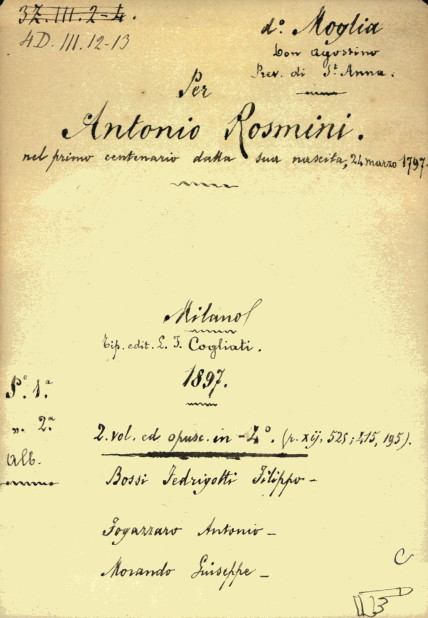 3Z.III.2-4.
4D.III.12-13
d.º Moglia
Don Agostino
Prev. di S.t Anna.
Per
Antonio Rosmini.
nel primo centenario dalla sua nascita, 24 marzo 1797.
Milano
Tip. edit. L. F. Cogliati.
1897.
P.e 1.a
v. 2.a
Alb.
2. vol. ed opusc. in-4º. (p. xij, 525; 415, 195).
Bossi Fedrigotti Filippo -
Fogazzaro Antonio -
Morando Giuseppe -
C